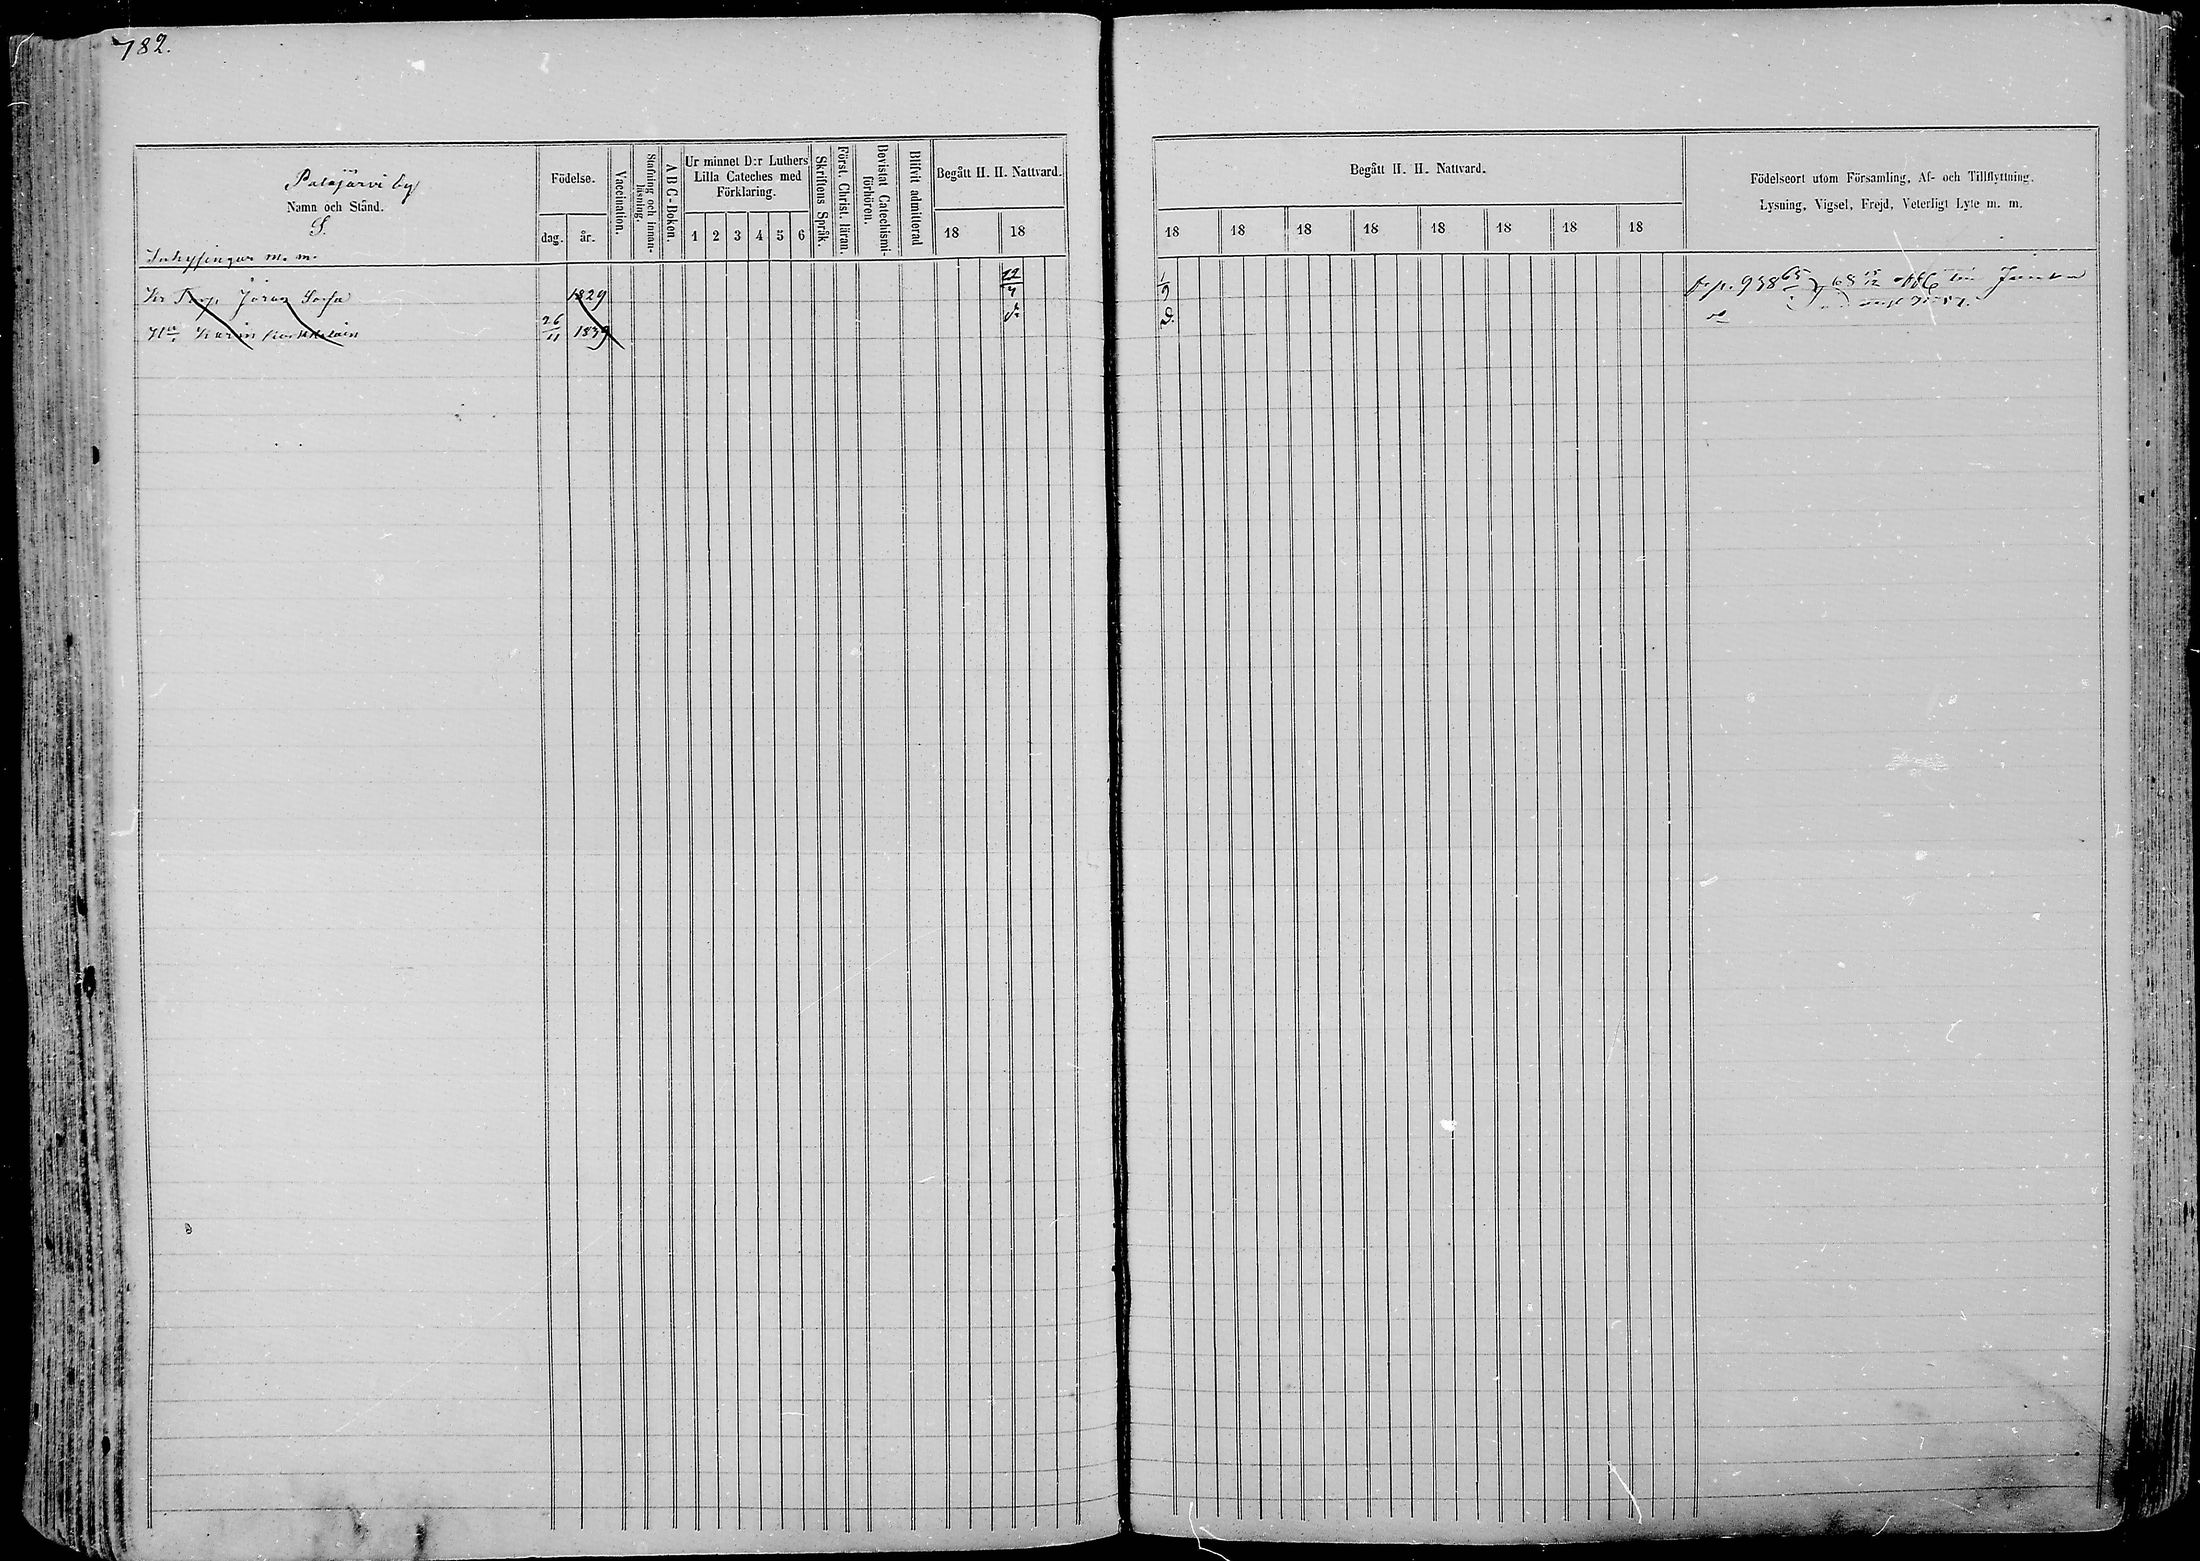 782.
Palojärvi by
Namn och Stånd.
S.
Inhysingar m. m.
Födelse.
dag. år.
Vaccination.
Stafning och innan-
läsning.
A B C-Boken.
Ur minnet D:r Luthers
Lilla Cateches med
Förklaring.
1 2 3 4 5 6
Skriftens Språk.
Först. Christ. läran.
Bevistat Catechismi-
förhören.
Blifvit admitterad
Begått H. H. Nattvard.
18 18
Jöran 1829
Hu Karin 26/11 1839
Begått H. H. Nattvard.
18 18 18 18 18 18 18 18
Födelseort utom Församling, Af- och Tillflyttning.
Lysning, Vigsel, Frejd, Veterligt Lyte m. m.
fr. p. 938 65 68